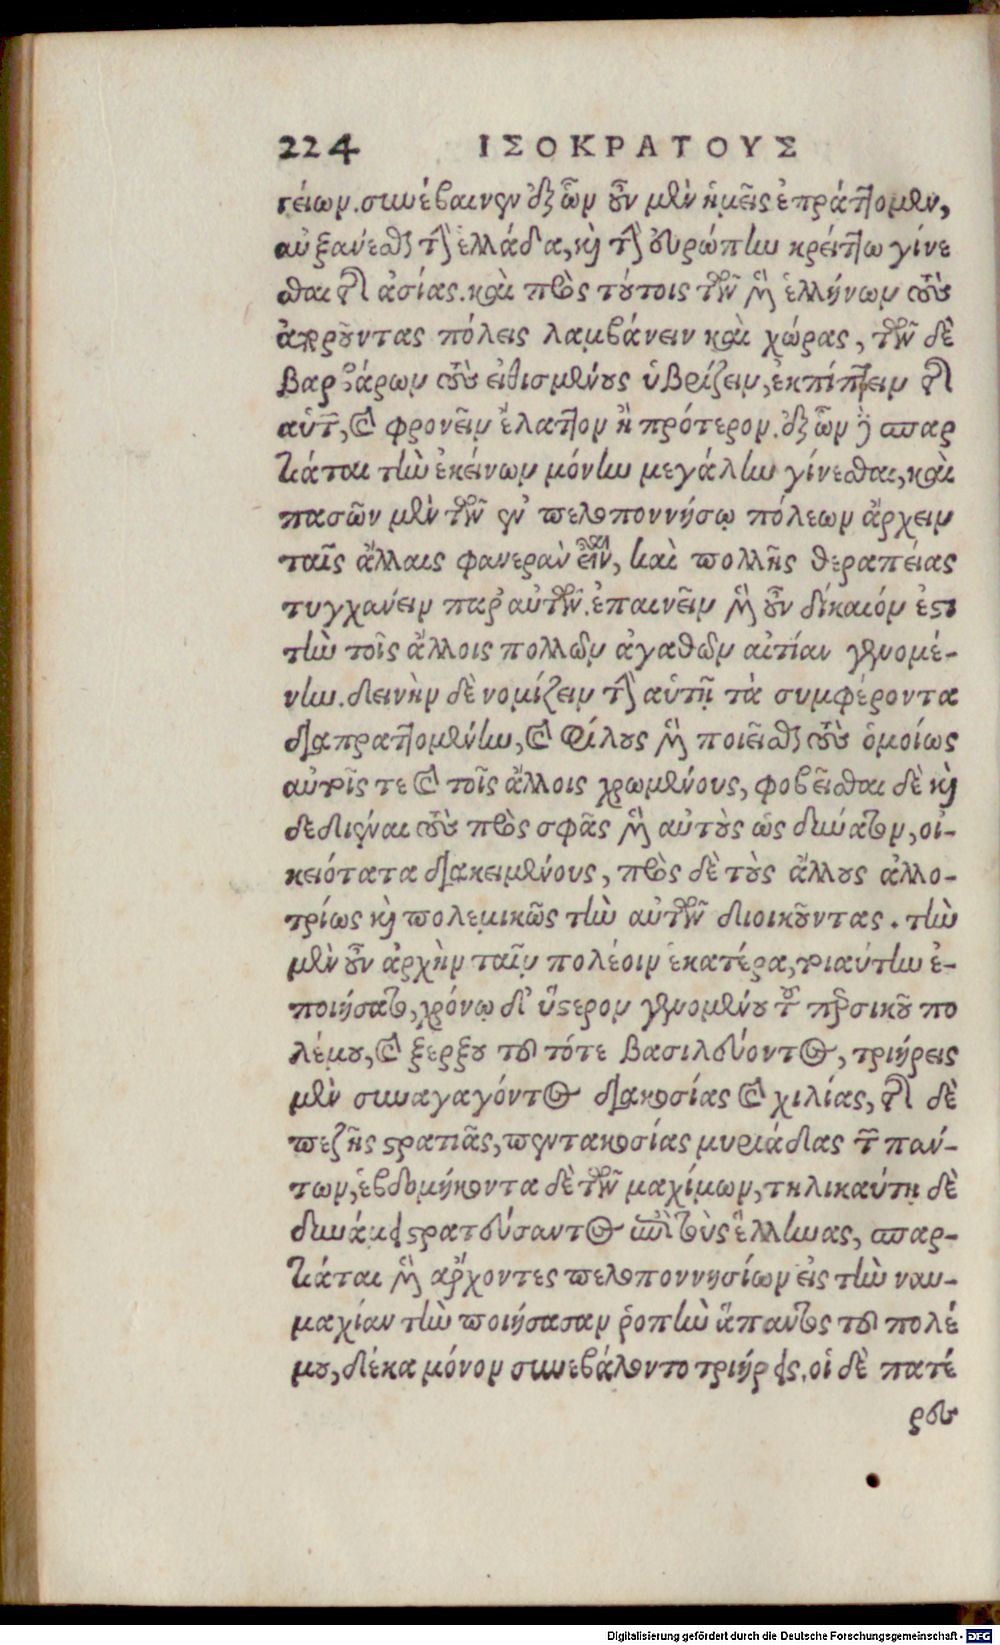 224 ΙΣΟΚΡΑΤΟΥΣ
γείων. συνέβαινεν ἐξ ὧν οὖν μὲν ἡμεῖς ἐπράττομεν,
αὐξάνεσθαι τὴν ἑλλάδα, καὶ τὴν εὐρώπην κρείττω γίνε
σθαι τῆς ἀσίας. καὶ πρὸς τούτοις τῶν μὲν ἑλλήνων τοὺς
ἀποροῦντας πόλεις λαμβάνειν καὶ χώρας, τῶν δὲ
βαρβάρων τοὺς εἰθισμένους ὑβρίζειν, ἐκπίπτειν τῆς
αὑτῶν, καὶ φρονεῖν ἔλαττον ἢ πρότερον. ἐξ ὧν δὲ σπαρ
τιάται τὴν ἐκείνων μόνην μεγάλην γίνεσθαι, καὶ
πασῶν μὲν τῶν ἐν πελοποννήσῳ πόλεων ἄρχειν
ταῖς ἄλλαις φανερὰν εἶναι, καὶ πολλῆς θεραπείας
τυγχάνειν παρ' αὐτῶν. ἐπαινεῖν μὲν οὖν δίκαιόν ἐστι
τὴν τοῖς ἄλλοις πολλῶν ἀγαθῶν αἰτίαν γενομέ-
νην. δεινὴν δὲ νομίζειν τὴν αὑτῇ τὰ συμφέροντα
διαπραττομένην, καὶ φίλους μὲν ποιεῖσθαι τοὺς ὁμοίως
αὐτοῖς τε καὶ τοῖς ἄλλοις χρωμένους, φοβεῖσθαι δὲ καὶ
δεδιέναι τοὺς πρὸς σφᾶς μὲν αὐτοὺς ὡς δύναιτον, οἰ-
κειότατα διακειμένους, πρὸς δὲ τοὺς ἄλλους ἀλλο-
τρίως καὶ πολεμικῶς τὴν αὐτῶν διοικοῦντας. τὴν
μὲν οὖν ἀρχὴν ταῖν πολέοιν ἑκατέρα, τοιαύτην ἐ-
ποιήσατο, χρόνῳ δ' ὕστερον γενομένου τοῦ περσικοῦ πο
λέμου, καὶ ξέρξου τοῦ τότε βασιλεύοντος, τριήρεις
μὲν συναγαγόντος διακοσίας καὶ χιλίας, τῆς δὲ
πεζῆς στρατιᾶς, πεντακοσίας μυριάδας τῶν πάν-
των, ἑβδομήκοντα δὲ τῶν μαχίμων, τηλικαύτῃ δὲ
δυνάμει στρατεύσαντος ἐπὶ τοὺς ἕλληνας, σπαρ-
τιάται μὲν ἄρχοντες πελοποννησίων εἰς τὴν ναυ-
μαχίαν τὴν ποιήσασαν ῥοπὴν ἅπαντος τοῦ πολέ
μου, δέκα μόνον συνεβάλοντο τριήρεις. οἱ δὲ πατέ
ρες
Digitalisierung gefördert durch die Deutsche Forschungsgemeinschaft - DFG